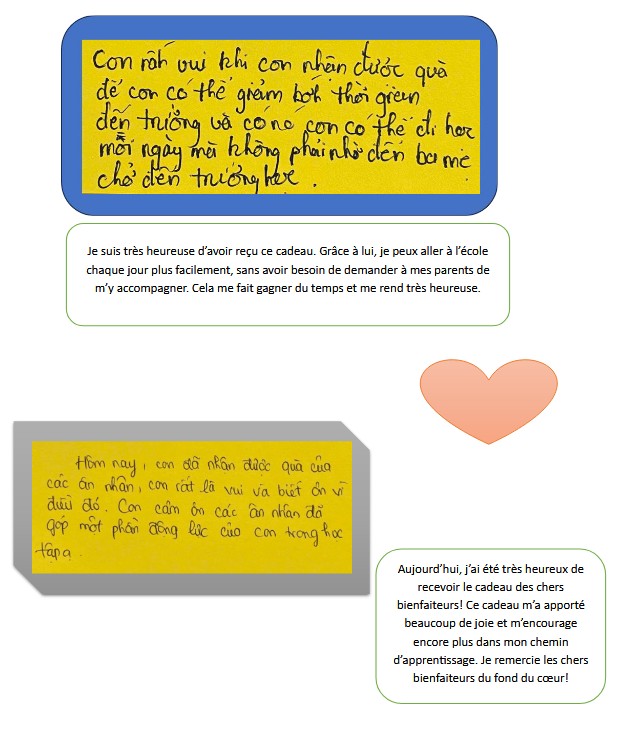 Con rất vui khi con nhận được quà
để con có thể giảm bớt thời gian
đến trường và có nó con có thể đi học
mỗi ngày mà không phải nhờ đến ba mẹ
chở đến trường học.
Je suis très heureuse d’avoir reçu ce cadeau. Grâce à lui, je peux aller à l’école
chaque jour plus facilement, sans avoir besoin de demander à mes parents de
m’y accompagner. Cela me fait gagner du temps et me rend très heureuse.
Hôm nay, con đã nhận được quà của
các ân nhân, con rất là vui và biết ơn vì
điều đó. Con cảm ơn các ân nhân đã
góp một phần động lực của con trong học
tập ạ.
Aujourd’hui, j’ai été très heureux de
recevoir le cadeau des chers
bienfaiteurs! Ce cadeau m’a apporté
beaucoup de joie et m’encourage
encore plus dans mon chemin
d’apprentissage. Je remercie les chers
bienfaiteurs du fond du cœur!